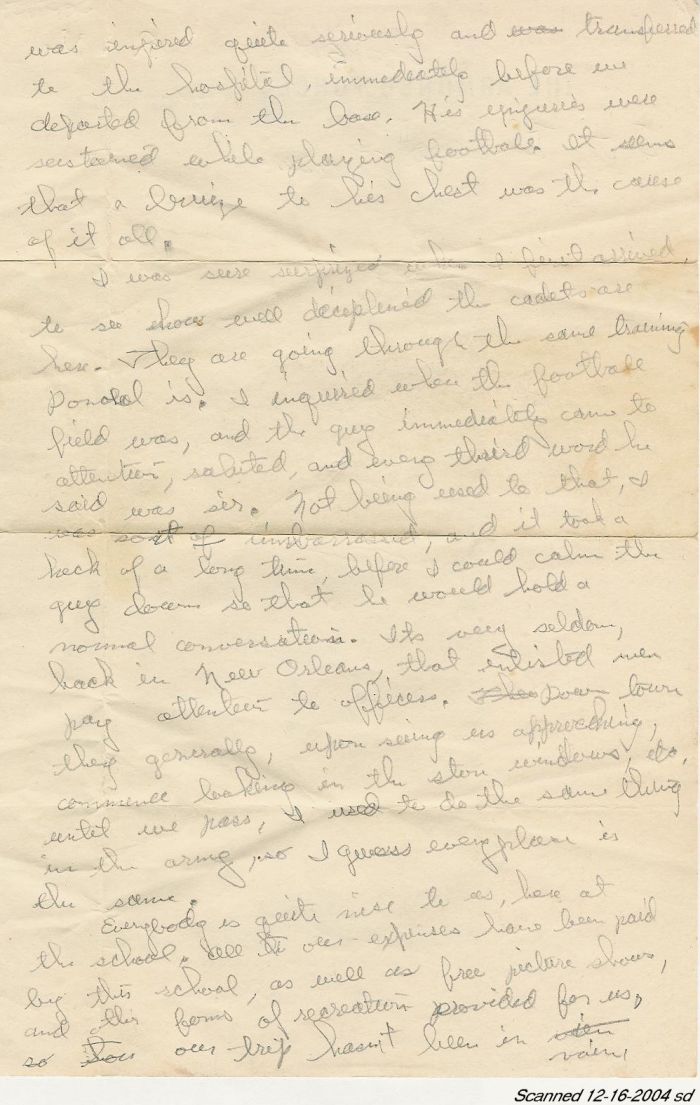 was injured quite seriously and was transferred
to the hospital, immediately before we
departed from the base. His injuries were
sustained while playing football. It seems
that a bruize to his chest was the cause
of it all.
I was sure surprized when I first arrived,
to see how well deciplened the cadets are
here. They are going through the same training
Donald is. I inquired where the football
field was, and the guy immediately came to
attention, saluted, and every third word he
said was sir. Not being used to that, I
was sort of imbarrassed, and it took a
heck of a long time, before I could calm the
guy down so that he would hold a
normal conversation. Its very seldom,
back in New Orleans, that enlisted men
pay attention to officers. Down town
they generally, upon seing us approaching,
commence looking in the store windows, etc,
until we pass, I used to do the same thing
in the army, so I guess everyplace is
the same.
Everybody is quite nise to us, here at
the school. All our expenses have been paid
by this school, as well as free picture shows,
and other forms of recreation provided for us,
so our trip hasn't been in vain,
Scanned 12-16-2004 sd